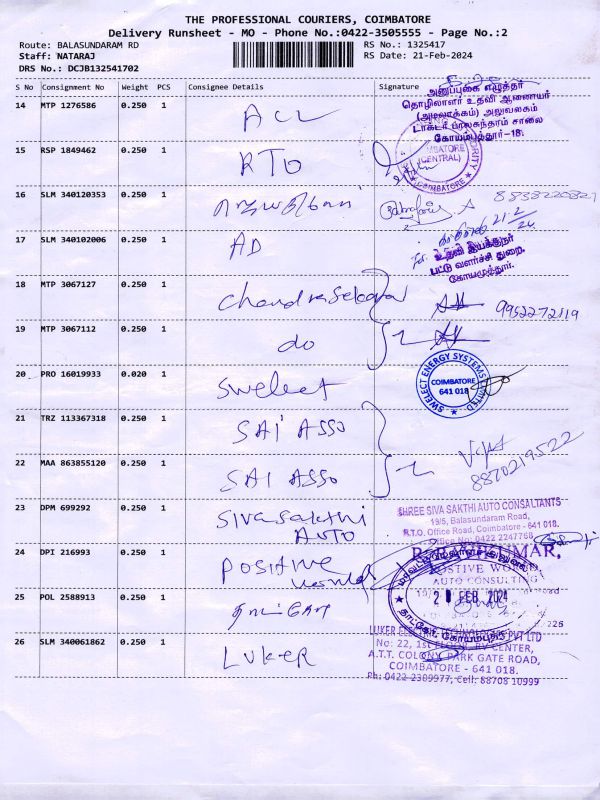 THE PROFESSIONAL COURIERS, COIMBATORE
Delivery Runsheet - MO - Phone No.:0422-3505555 - Page No.:2
Route: BALASUNDARAM RD
RS No.: 1325417
Staff: NATARAJ
RS Date: 21-Feb-2024
DRS No.: DCJB132541702
S No Consignment No Weight PCS Consignee Details Signature
அனுப்புகை எழுத்தர்
தொழிலாளர் உதவி ஆணையர்
(அமலாக்கம்) அலுவலகம்
டாக்டர் பாலசுந்தரம் சாலை
கோயம்புத்தூர்-18.
14 MTP 1276586 0.250 1 ACL
15 RSP 1849462 0.250 1 RTO
(CENTRAL)
COIMBATORE
16 SLM 340120353 0.250 1
8838220827
21/2
24
17 SLM 340102006 0.250 1 AD
உதவி இயக்குநர்
பட்டு வளர்ச்சி துறை,
கோயமுத்தூர்.
18 MTP 3067127 0.250 1 Chandrasekaran
9952272119
19 MTP 3067112 0.250 1 do
20 PRO 16019933 0.020 1 swelect
SWELECT ENERGY SYSTEMS LIMITED
COIMBATORE
641 018
21 TRZ 113367318 0.250 1 SAI ASSO
22 MAA 863855120 0.250 1 SAI ASSO
8870219522
23 DPM 699292 0.250 1 sivasakthi AUTO
SHREE SIVA SAKTHI AUTO CONSULTANTS
19/5, Balasundaram Road,
R.T.O. Office Road, Coimbatore - 641 018.
Office No: 0422 2247768
24 DPI 216993 0.250 1 positive world
POSTIVE WORLD
AUTO CONSULTING
2 FEB 2024
25 POL 2588913 0.250 1
26 SLM 340061862 0.250 1 LUKER
LUKER ELECTRIC TECHNOLOGIES PVT LTD
No: 22, 1st FLOOR, RV CENTER,
A.T.T. COLONY, PARK GATE ROAD,
COIMBATORE - 641 018.
Ph: 0422-2309977, Cell: 88708 10999